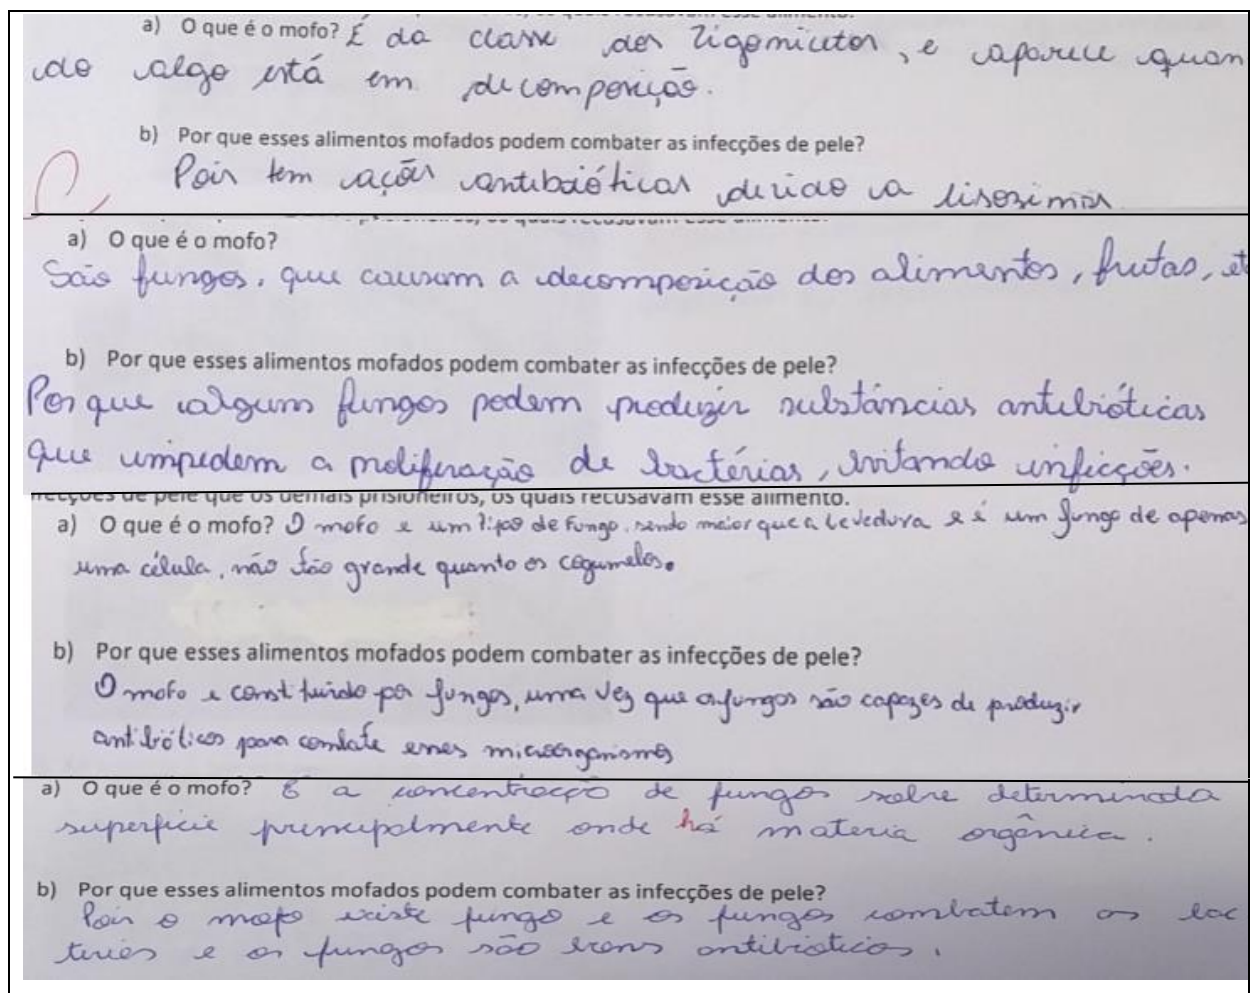 a) O que é o mofo? É da classe dos Zigomicetos, e aparece quan
do algo está em decomposição.
b) Por que esses alimentos mofados podem combater as infecções de pele?
Pois tem ações antibióticas devido a lisozimas
a) O que é o mofo?
São fungos, que causam a decomposição dos alimentos, frutas, et
b) Por que esses alimentos mofados podem combater as infecções de pele?
Por que alguns fungos podem produzir substâncias antibióticas
que impedem a proliferação de bactérias, evitando infecções.
infecções de pele que os demais prisioneiros, os quais recusavam esse alimento.
a) O que é o mofo? O mofo e um tipo de Fungo, sendo maior que a levedura e é um fungo de apenas
uma célula, não tão grande quanto os cogumelos.
b) Por que esses alimentos mofados podem combater as infecções de pele?
O mofo e constituido por fungos, uma vez que os fungos são capazes de produzir
antibióticos para combate esses microorganismos
a) O que é o mofo? É a concentração de fungos sobre determinada
superficie principalmente onde há materia orgânica.
b) Por que esses alimentos mofados podem combater as infecções de pele?
Pois o mofo existe fungo e os fungos combatem as bac
terias e os fungos são bons antibioticos.